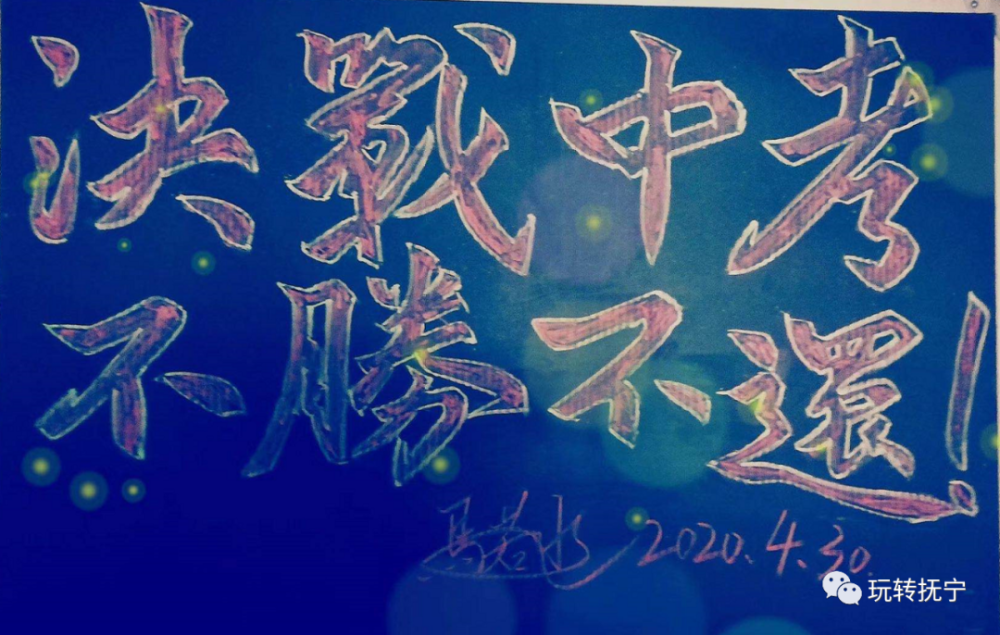 決戰中考
不勝不還！
馬若水 2020.4.30.
玩转抚宁